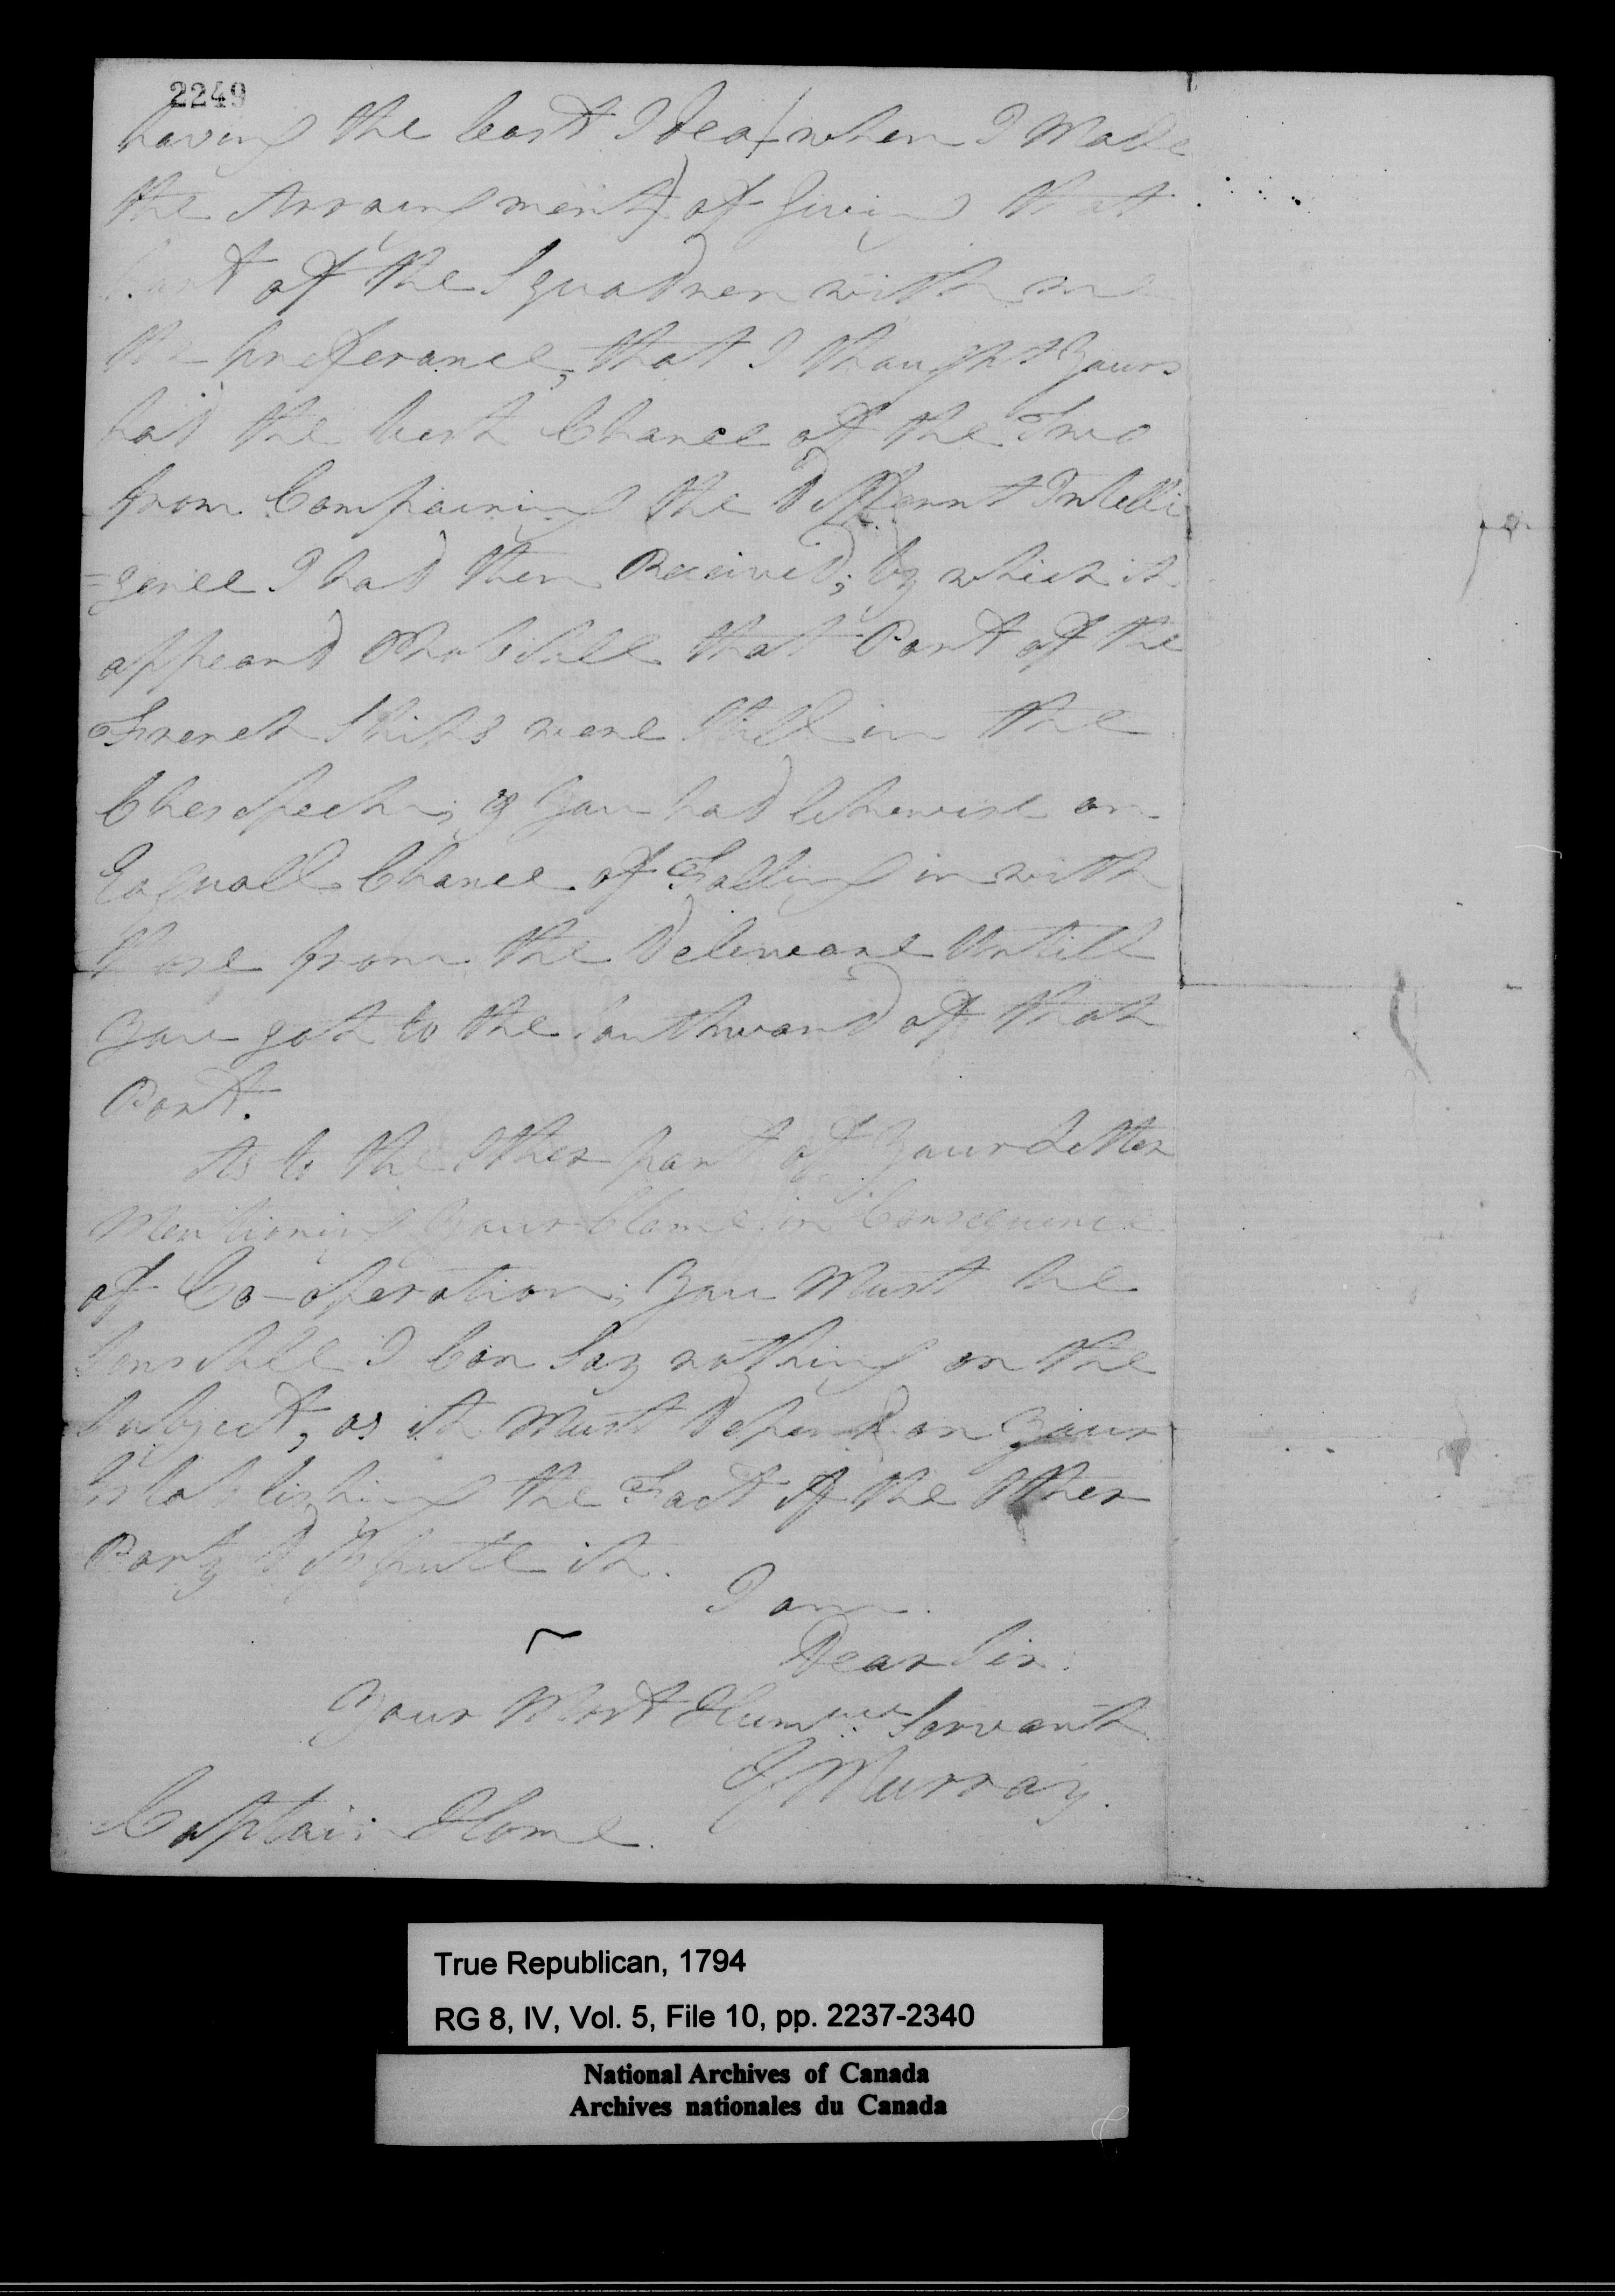 2249
having the least Idea (when I Made
the Arraingment) of Giving that
Part of the Squadren with me
the preferance, that I thaught Yours
had the best Chance of the Two
from Compairing the differnt Intelli
=gence I had then Received; by which it
appeard Probable that Part of the
French Ships were still in the
Chespeek; & You had likewise an
Eaquall Chance of Falling in with
those from the Deleware Untill
you got to the Southward of that
Port.
As to the Other part of Your Letter
Mentioning Your Clame in Consequence
of Co-operation; You Must be
Sensible I Can Say nothing on the
Subject, as it Must depend on Your
Establishing the Fact if the Other
Party dispute it.
I am
Dear Sir.
Your Most Humble Servant
G Murray.
Captain Home.
True Republican, 1794
RG 8, IV, Vol. 5, File 10, pp. 2237-2340
National Archives of Canada
Archives nationales du Canada